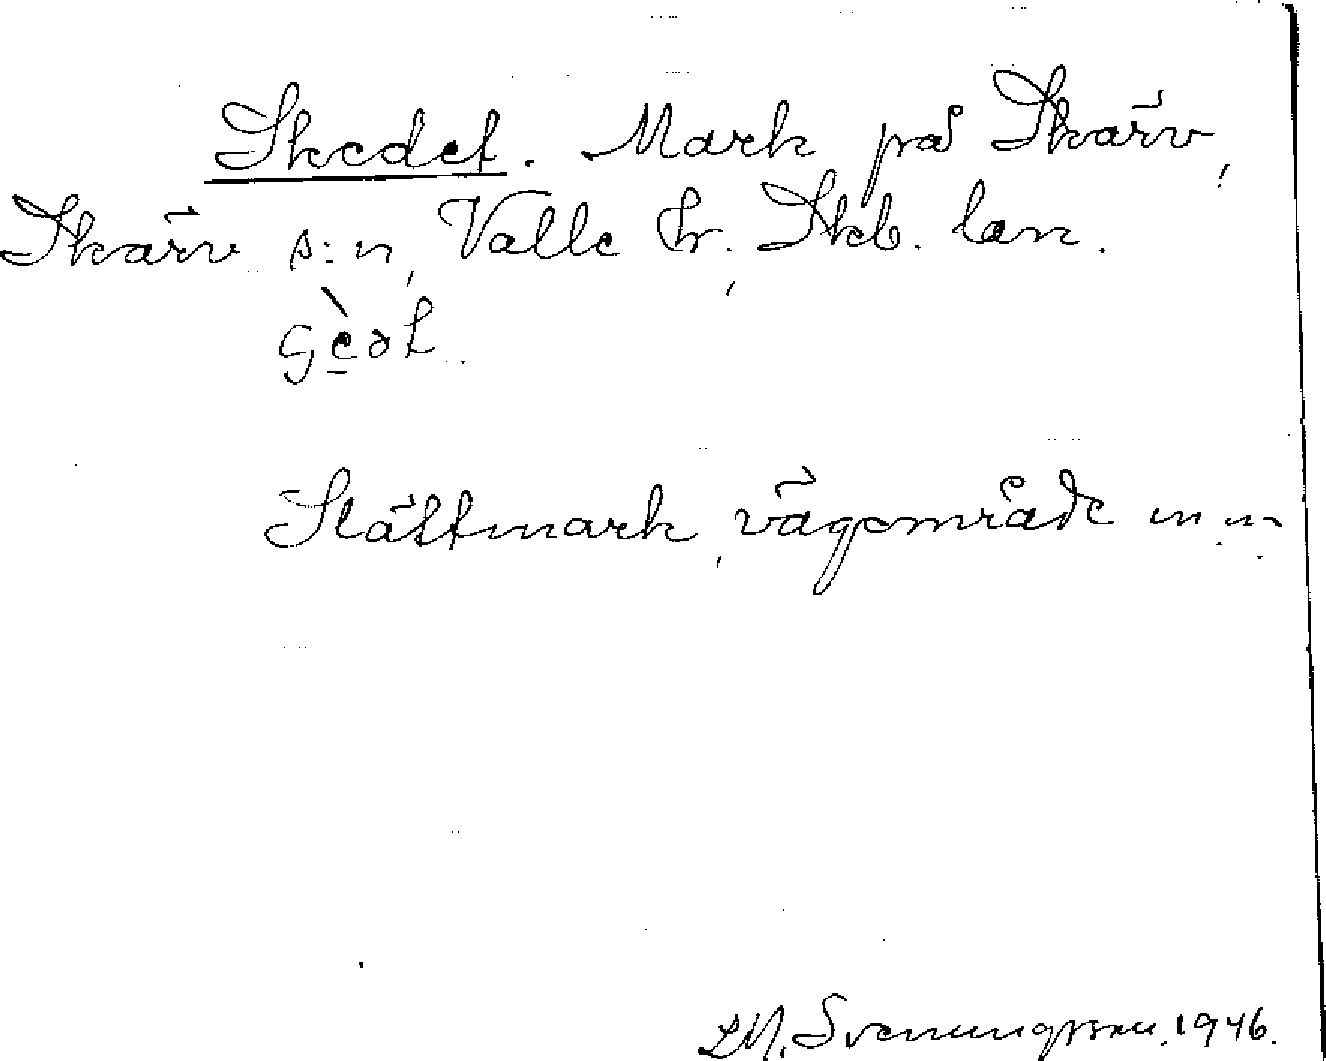 Skedet. Mark på Skärv,
Skärv s:n, Valle hr., Skb. län.
Slättmark, vägområde m.m.
LM. Svenungsson. 1946.